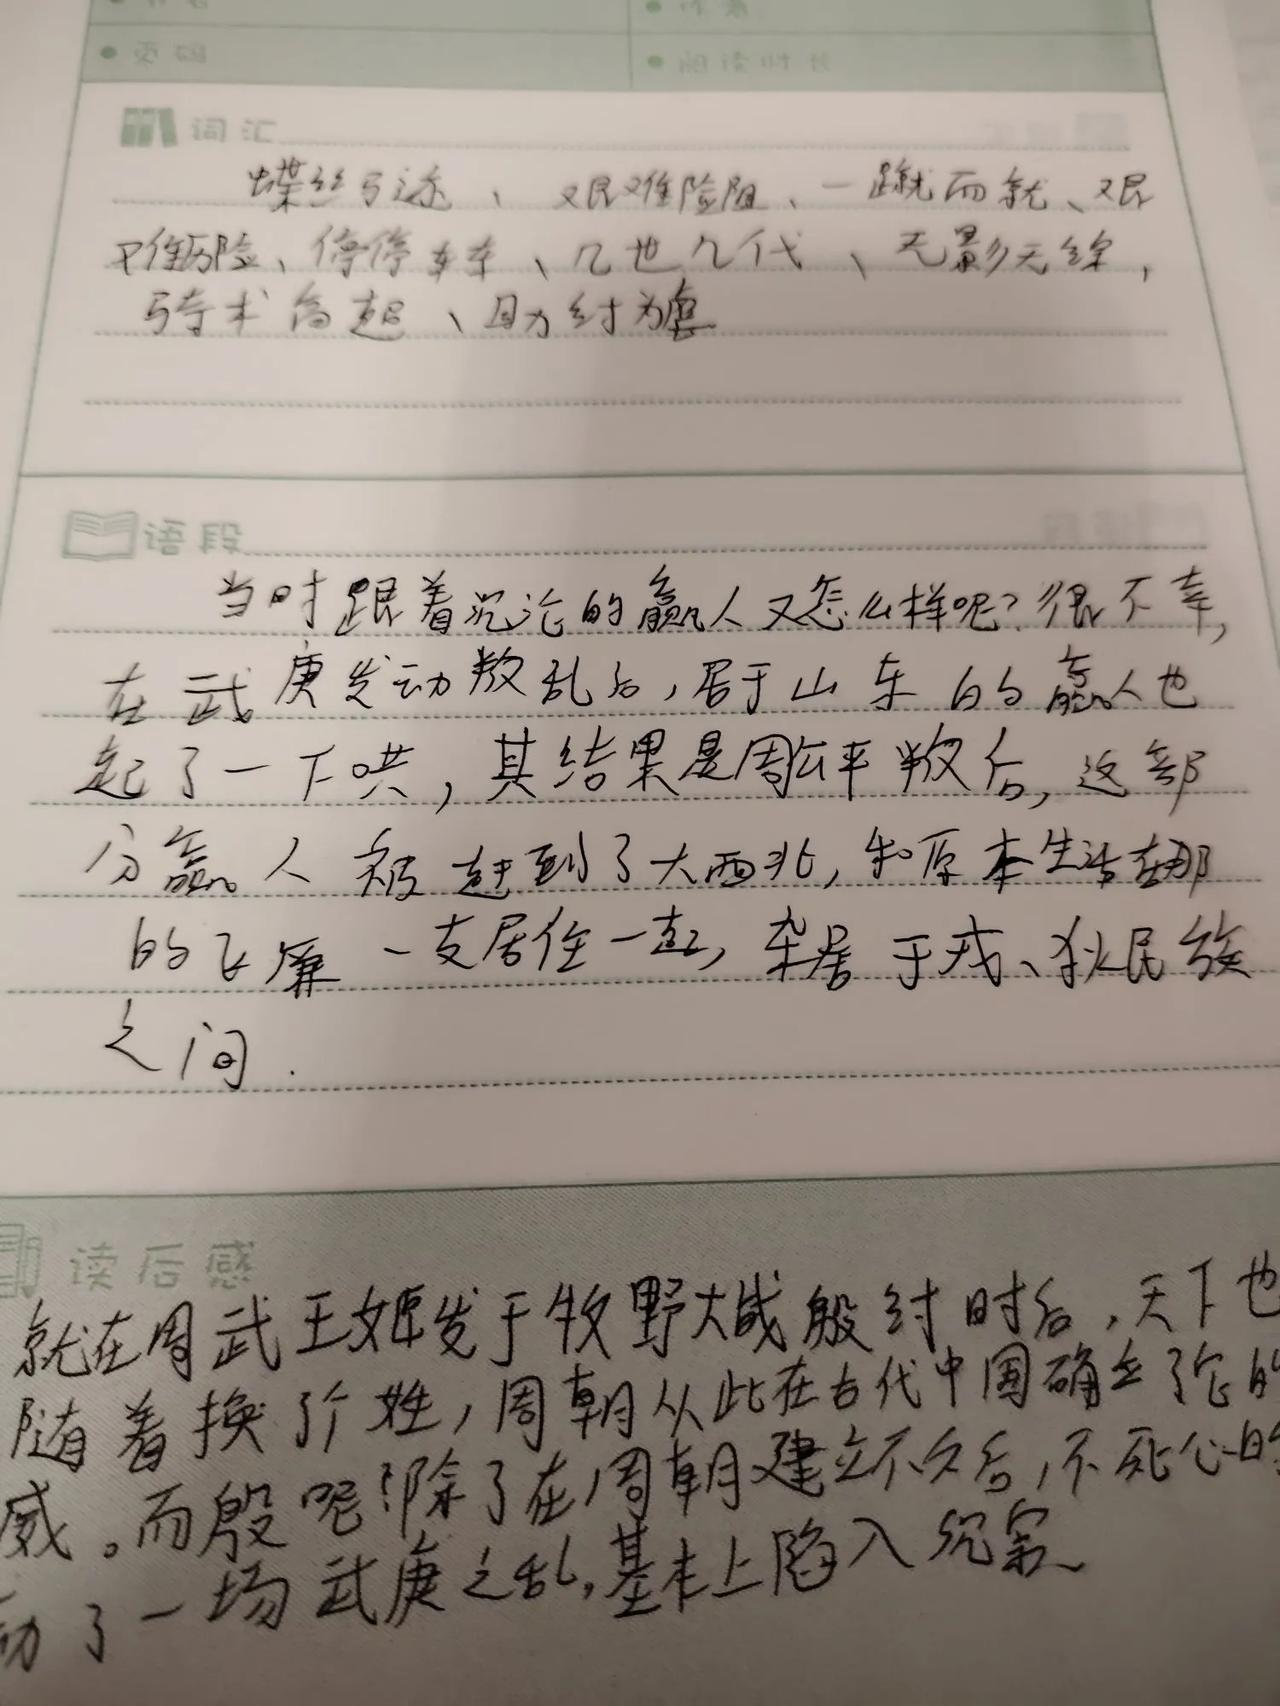 页码 阅读时长
词汇
蝶丝马迹、艰难险阻、一蹴而就、艰
难历险、停停车车、几世几代、无影无综，
骑术高超、助纣为虐
语段
当时跟着沉沦的嬴人又怎么样呢？很不幸，
在武庚发动叛乱后，居于山东的嬴人也
起了一下哄，其结果是周公平叛后，这部
分嬴人被赶到了大西北，和原本生活在那
的飞廉一支居住一起，杂居于戎、狄民族
之间.
读后感
就在周武王姬发于牧野大战殷纣时后，天下也
随着换了个姓，周朝从此在古代中国确立了它的
威。而殷呢！除了在周朝建立不久后，不死心的
动了一场武庚之乱，基本上陷入沉寂